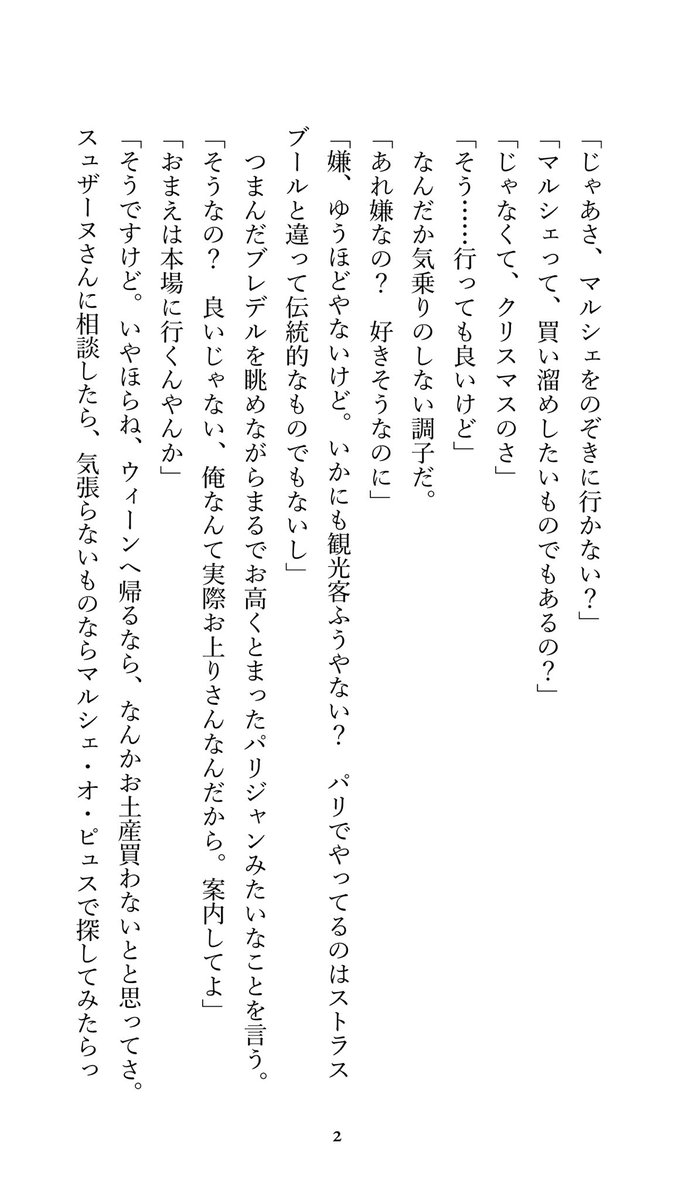 「じゃあさ、マルシェをのぞきに行かない？」
「マルシェって、買い溜めしたいものでもあるの？」
「じゃなくて、クリスマスのさ」
「そう……行っても良いけど」
　なんだか気乗りのしない調子だ。
「あれ嫌なの？　好きそうなのに」
「嫌、ゆうほどやないけど。いかにも観光客ふうやない？　パリでやってるのはストラス
ブールと違って伝統的なものでもないし」
　つまんだブレデルを眺めながらまるでお高くとまったパリジャンみたいなことを言う。
「そうなの？　良いじゃない、俺なんて実際お上りさんなんだから。案内してよ」
「おまえは本場に行くんやんか」
「そうですけど。いやほらね、ウィーンへ帰るなら、なんかお土産買わないとと思ってさ。
スュザーヌさんに相談したら、気張らないものならマルシェ・オ・ピュスで探してみたらっ
2